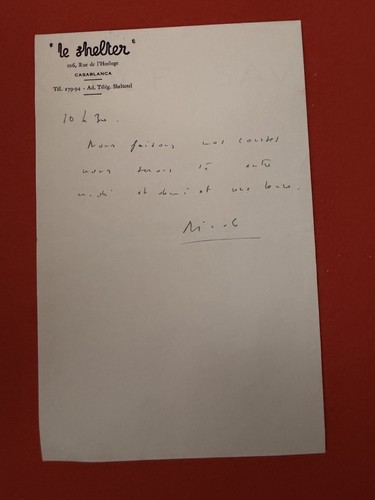 "le shelter"
106, Rue de l'Horloge
CASABLANCA
Tél. 279-94 - Ad. Télég. Sheltotel
10 h 30.
Nous faisons nos courses
nous serons là entre
midi et demi et une heure.